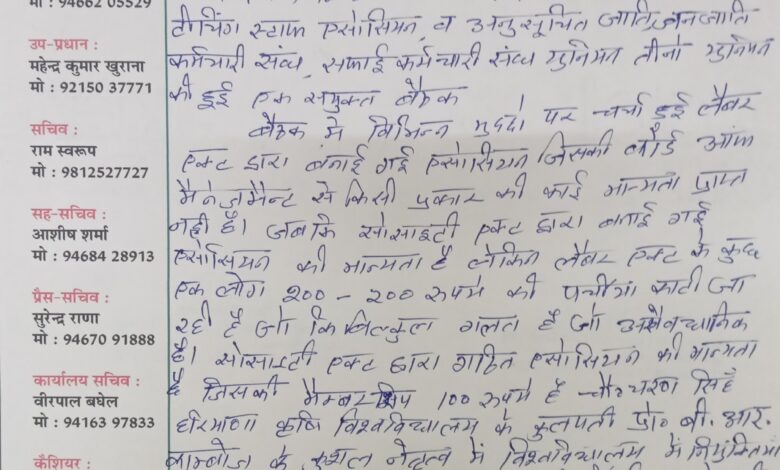 मो : 94662 05529
उप-प्रधान :
महेन्द्र कुमार खुराना
मो : 92150 37771
सचिव :
राम स्वरूप
मो : 9812527727
सह-सचिव :
आशीष शर्मा
मो : 94684 28913
प्रैस-सचिव :
सुरेन्द्र राणा
मो : 94670 91888
कार्यालय सचिव :
वीरपाल बघेल
मो : 94163 97833
कैशियर :
टीचिंग स्टाफ एसोसियन, व अनुसूचित जाति, जनजाति
कर्मचारी संघ, सफाई कर्मचारी संघ युनियन तीनो युनियन
की हुई एक सयुक्त बैठक
बैठक मे विभिन्न मुद्दो पर चर्चा हुई लैबर
एक्ट द्वारा बनाई गई एसोसियन जिसकी बोर्ड आफ
मैनेजमैन्ट से किसी प्रकार की कोई मान्यता प्राप्त
नही है। जबकि सोसाइटी एक्ट द्वारा बनाई गई
एसोसियन की मान्यता है लेकिन लैबर एक्ट के कुछ
एक लोग 200 - 200 रुपये की पर्चीया काटी जा
रही है जो कि बिल्कुल गलत है जो
है। सोसाइटी एक्ट द्वारा गठित एसोसियन की मान्यता
है जिसकी मैम्बर सिप 100 रुपये है चौ० चरण सिंह
हरियाणा कृषि विश्वविद्यालय के कुलपती प्रो० बी. आर.
काम्बोज के कुशल नेतृत्व में विश्वविद्यालय में